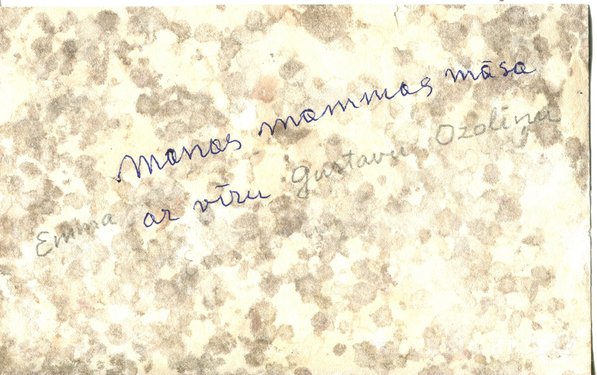 manas mammas māsa
Emma ar vīru Gustavu Ozoliņu